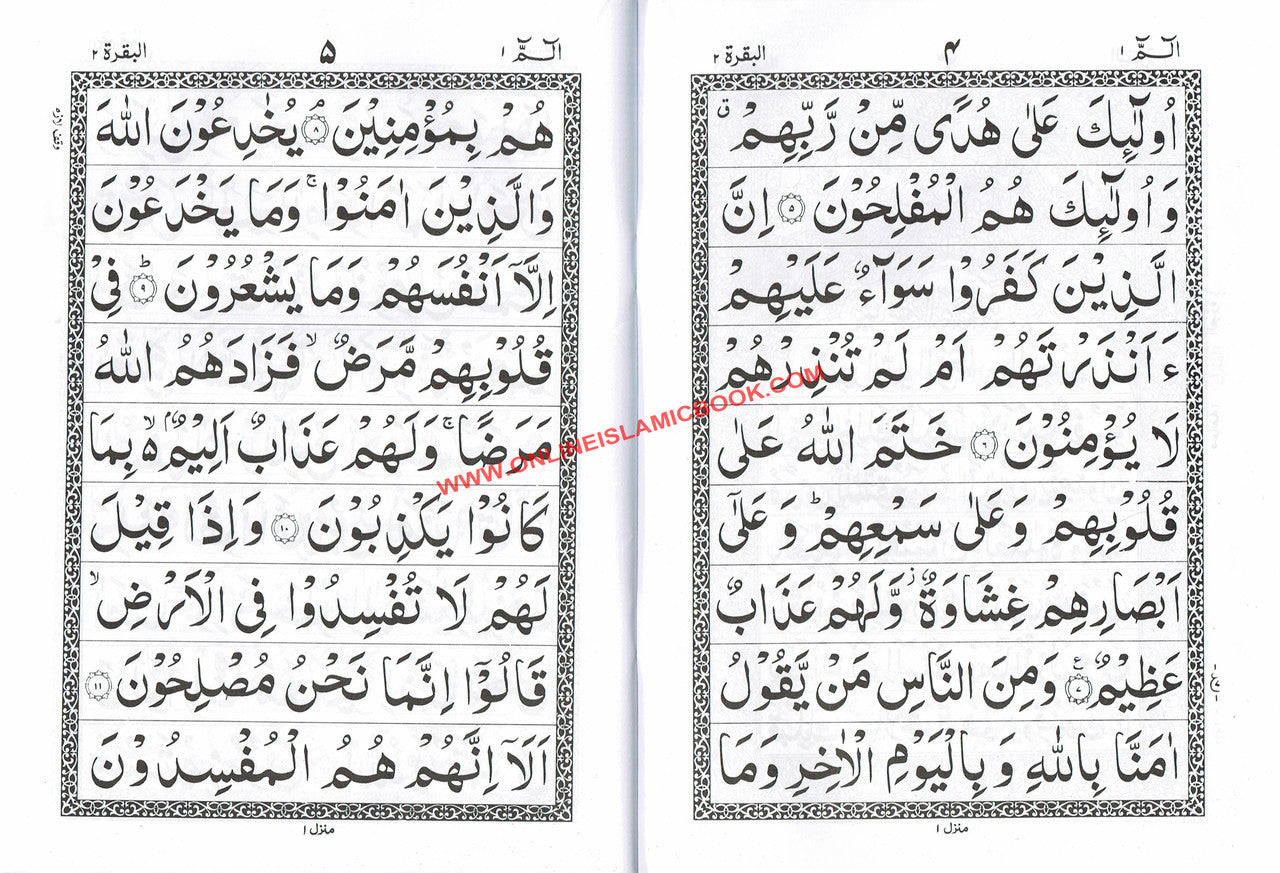 الٓمّٓ ۱
۴
البقرة ۲
اُولٰٓئِكَ عَلٰى هُدًى مِّنْ رَّبِّهِمْ ق
وَ اُولٰٓئِكَ هُمُ الْمُفْلِحُوْنَ ۵ اِنَّ
الَّذِيْنَ كَفَرُوْا سَوَآءٌ عَلَيْهِمْ
ءَاَنْذَرْتَهُمْ اَمْ لَمْ تُنْذِرْهُمْ
لَا يُؤْمِنُوْنَ ۶ خَتَمَ اللّٰهُ عَلٰى
قُلُوْبِهِمْ وَعَلٰى سَمْعِهِمْ ؕ وَعَلٰٓى
اَبْصَارِهِمْ غِشَاوَةٌ ز وَّلَهُمْ عَذَابٌ
عَظِيْمٌ ۷ ع وَمِنَ النَّاسِ مَنْ يَّقُوْلُ
اٰمَنَّا بِاللّٰهِ وَ بِالْيَوْمِ الْاٰخِرِ وَمَا
منزل ۱
الٓمّٓ ۱
۵
البقرة ۲
هُمْ بِمُؤْمِنِيْنَ ۸ ۘ يُخٰدِعُوْنَ اللّٰهَ
وَالَّذِيْنَ اٰمَنُوْا ۚ وَمَا يَخْدَعُوْنَ
اِلَّآ اَنْفُسَهُمْ وَمَا يَشْعُرُوْنَ ۹ ؕ فِيْ
قُلُوْبِهِمْ مَّرَضٌ ۙ فَزَادَهُمُ اللّٰهُ
مَرَضًا ۚ وَلَهُمْ عَذَابٌ اَلِيْمٌۢ ۙ۵ بِمَا
كَانُوْا يَكْذِبُوْنَ ۱۰ وَاِذَا قِيْلَ
لَهُمْ لَا تُفْسِدُوْا فِى الْاَرْضِ ۙ
قَالُوْٓا اِنَّمَا نَحْنُ مُصْلِحُوْنَ ۱۱
اَلَآ اِنَّهُمْ هُمُ الْمُفْسِدُوْنَ
منزل ۱
WWW.ONLINEISLAMICBOOK.COM